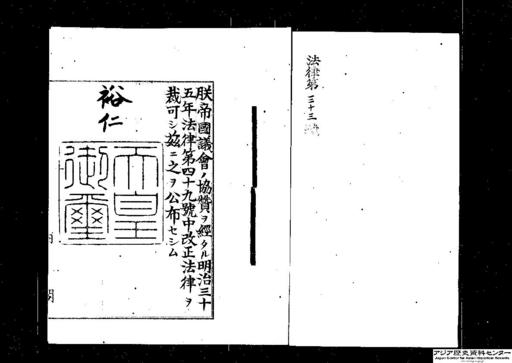 法律第三十三號
朕帝國議會ノ協贊ヲ經タル明治三十
五年法律第四十九號中改正法律ヲ
裁可シ茲ニ之ヲ公布セシム
裕仁
天皇御璽
内
閣
アジア歴史資料センター
Japan Center for Asian Historical Records